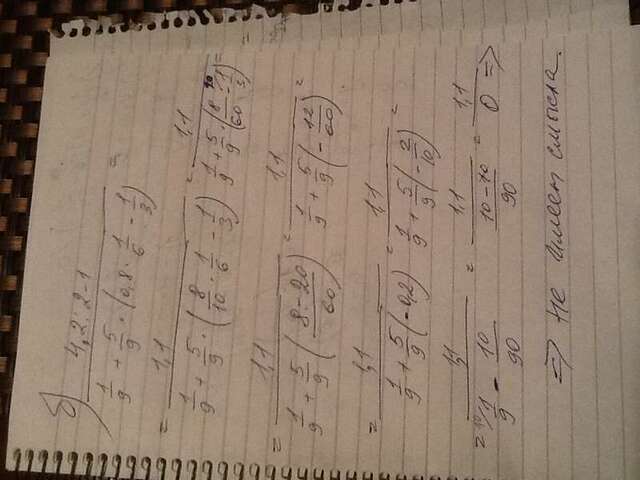 б) 4,2 : 2 - 1 / (1/9 + 5/9 · (0,8 · 1/6 - 1/3)) =
= 1,1 / (1/9 + 5/9 · (8/10 · 1/6 - 1/3)) = 1,1 / (1/9 + 5/9 · (8/60 - 1/3)) =
= 1,1 / (1/9 + 5/9 (8-20/60)) = 1,1 / (1/9 + 5/9 (-12/60)) =
= 1,1 / (1/9 + 5/9 (-0,2)) = 1,1 / (1/9 + 5/9 (-2/10)) =
= 1,1 / (1/9 - 10/90) = 1,1 / (10-10/90) = 1,1 / 0 =>
=> Не имеет смысла.